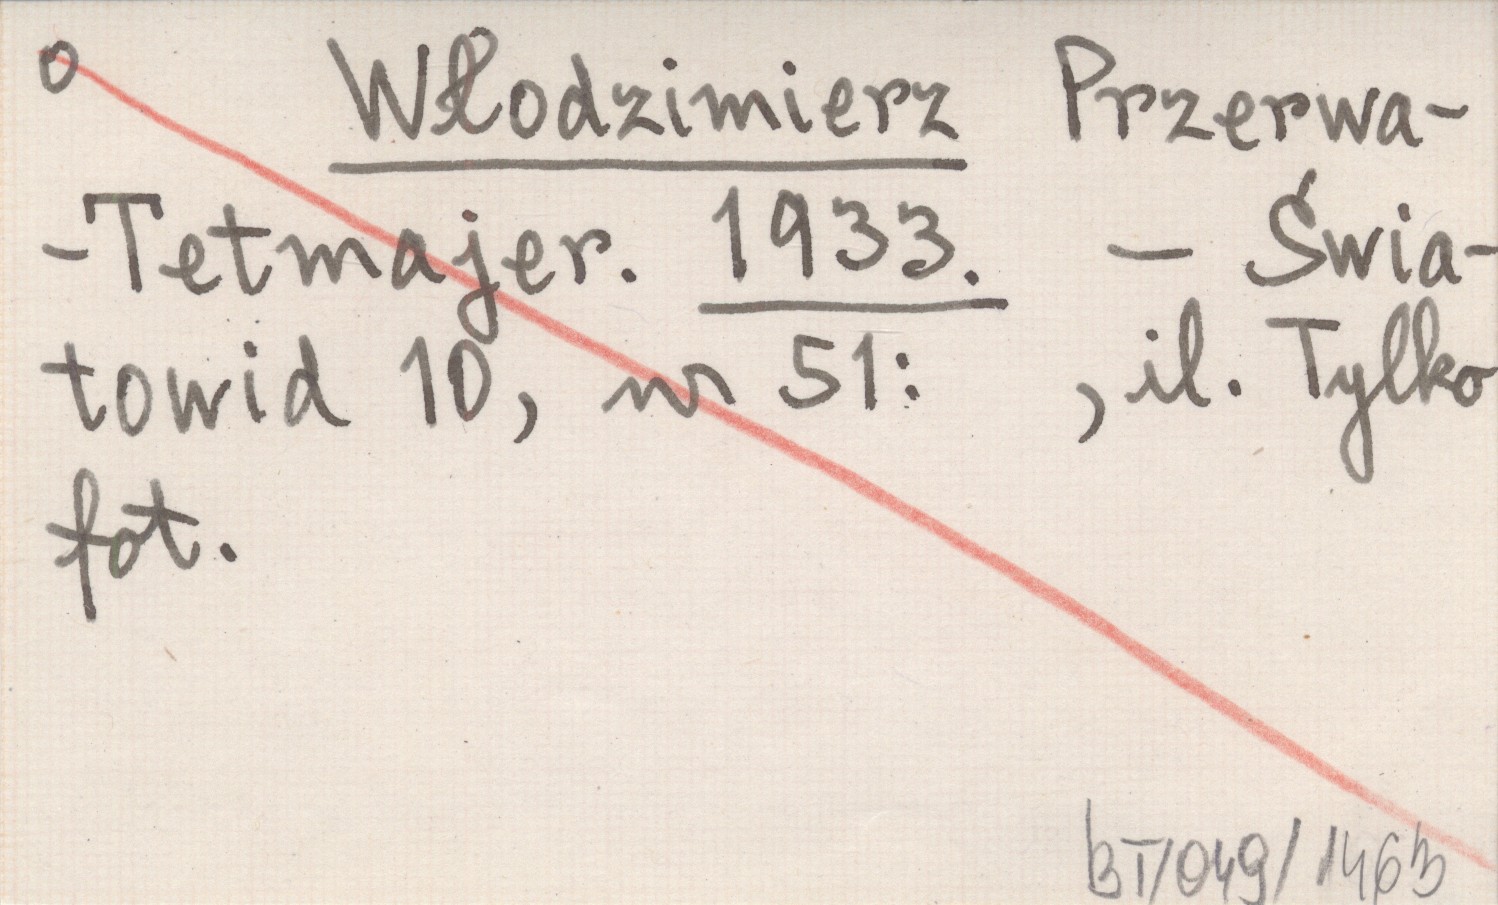 o Włodzimierz Przerwa-
-Tetmajer. 1933. - Świa-
towid 10, nr 51: , il. Tylko
fot.
BT/049/1463